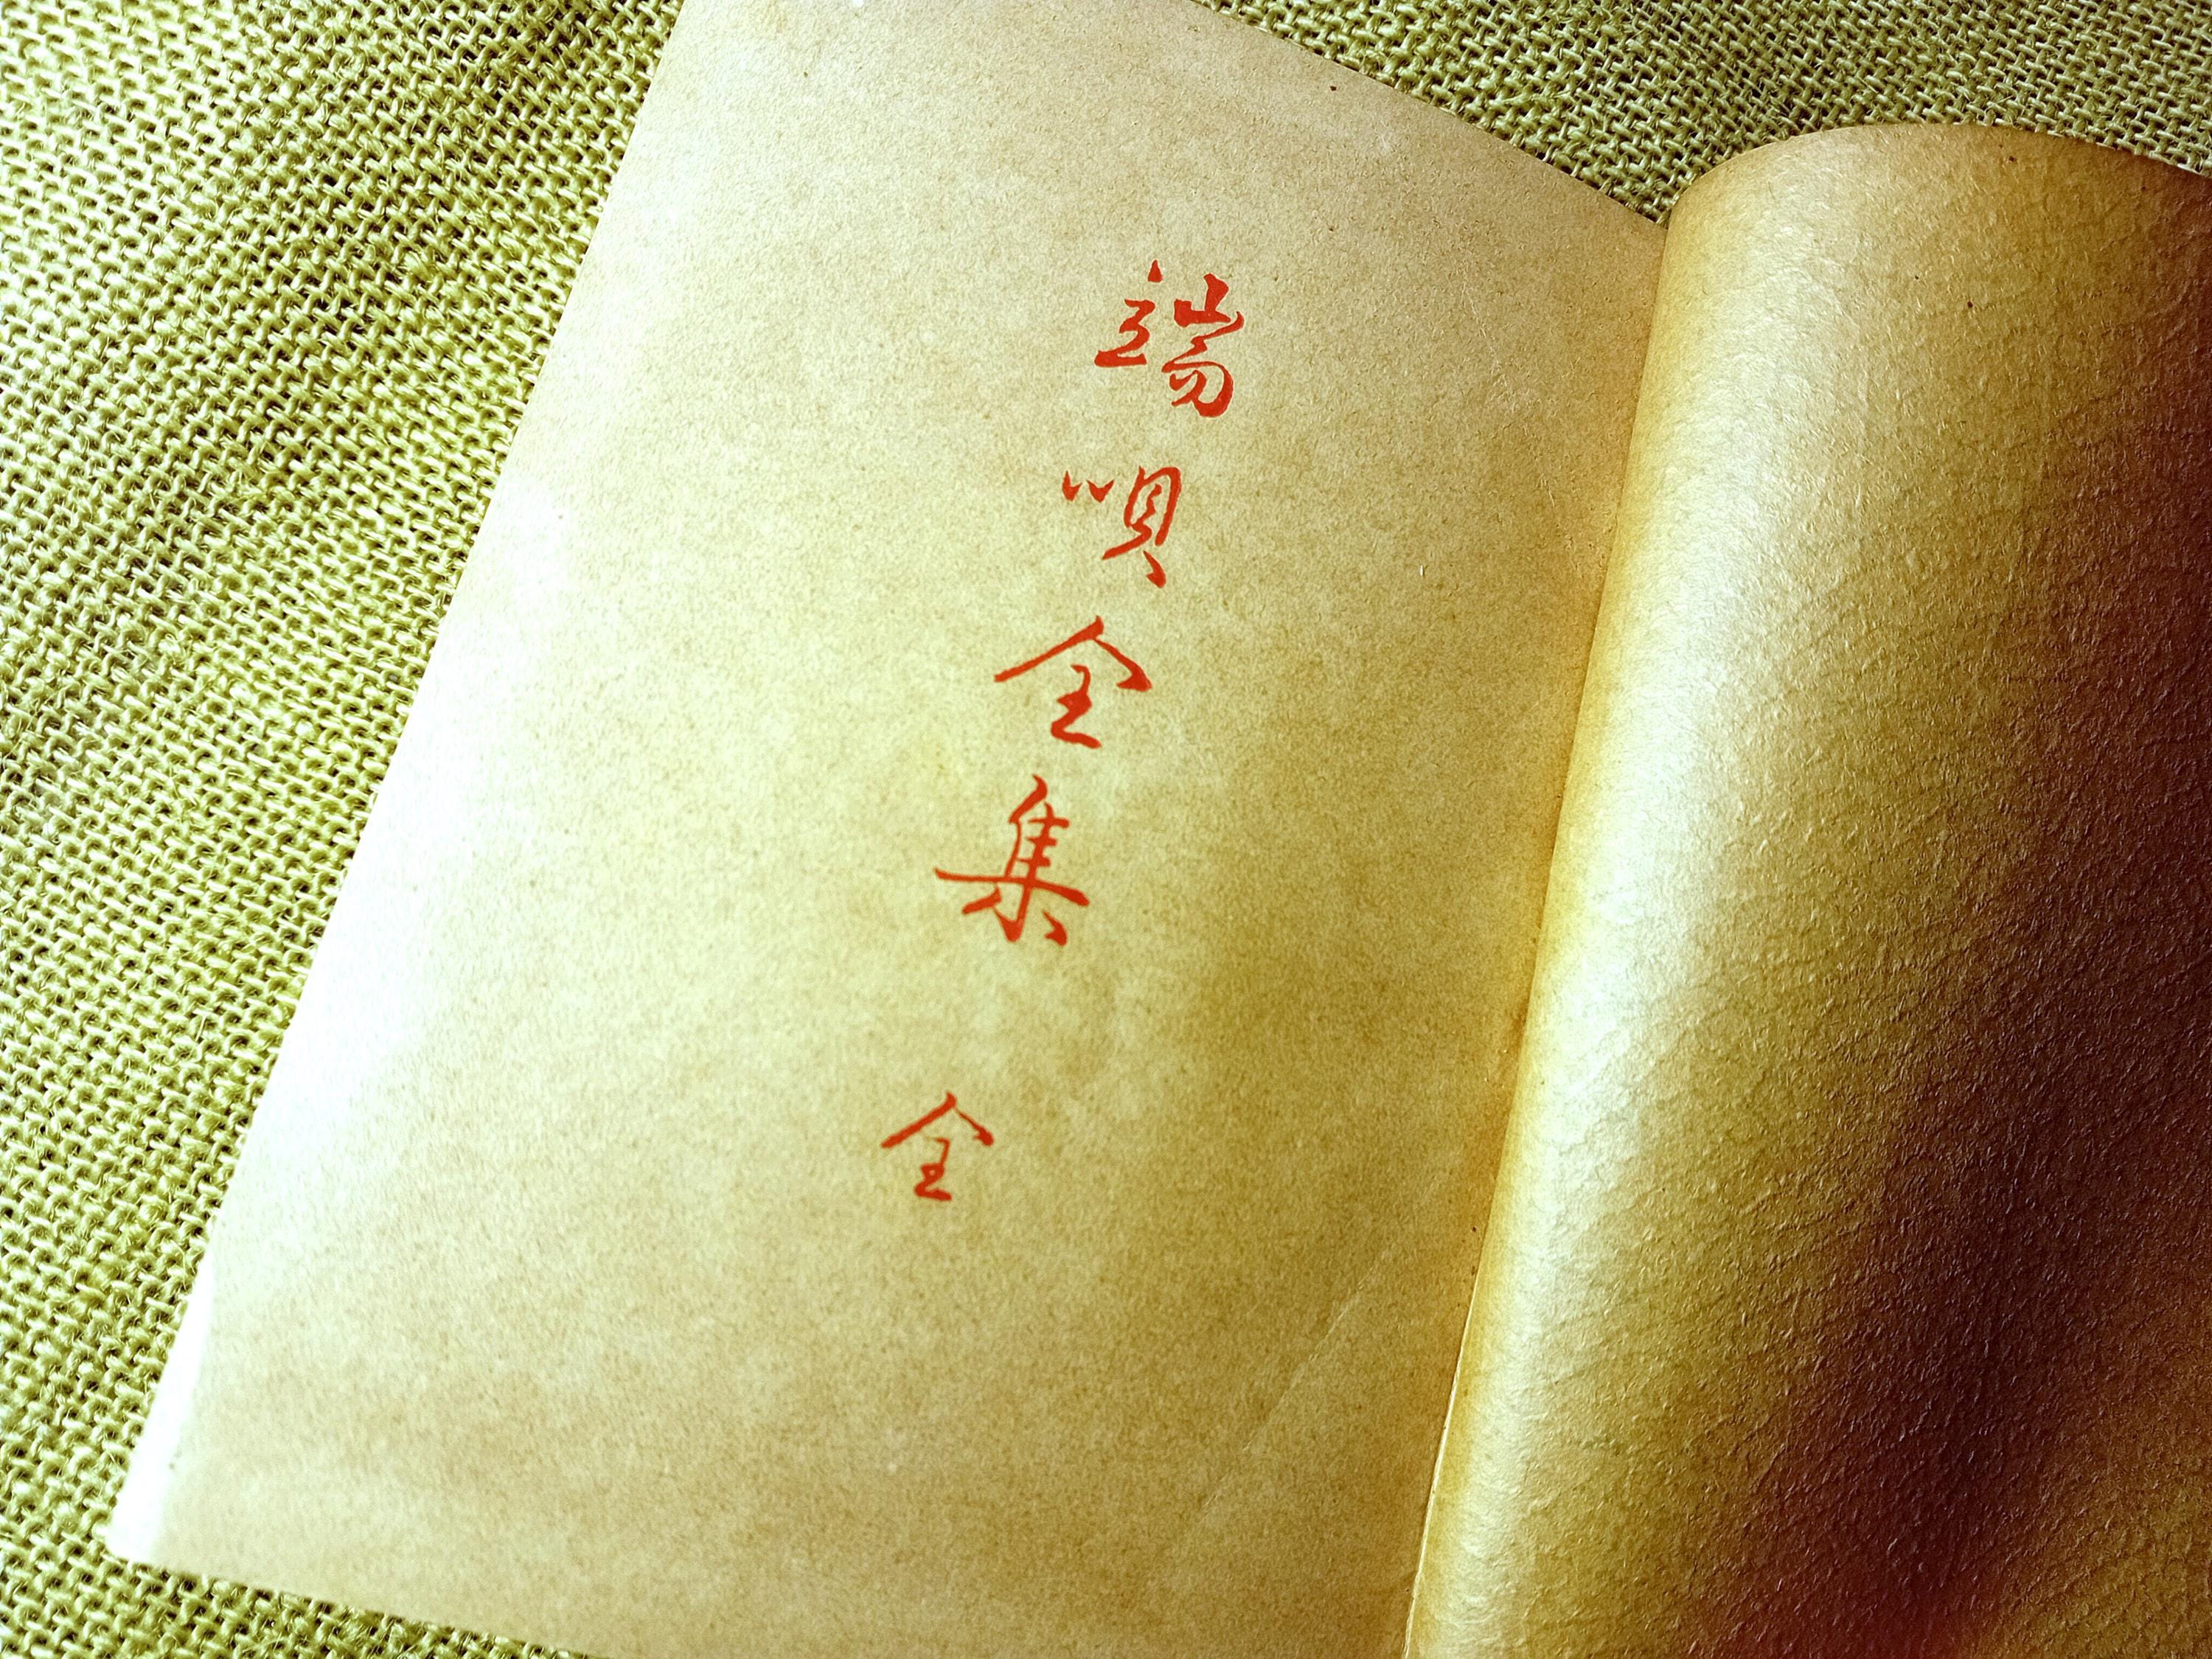 端唄全集 全